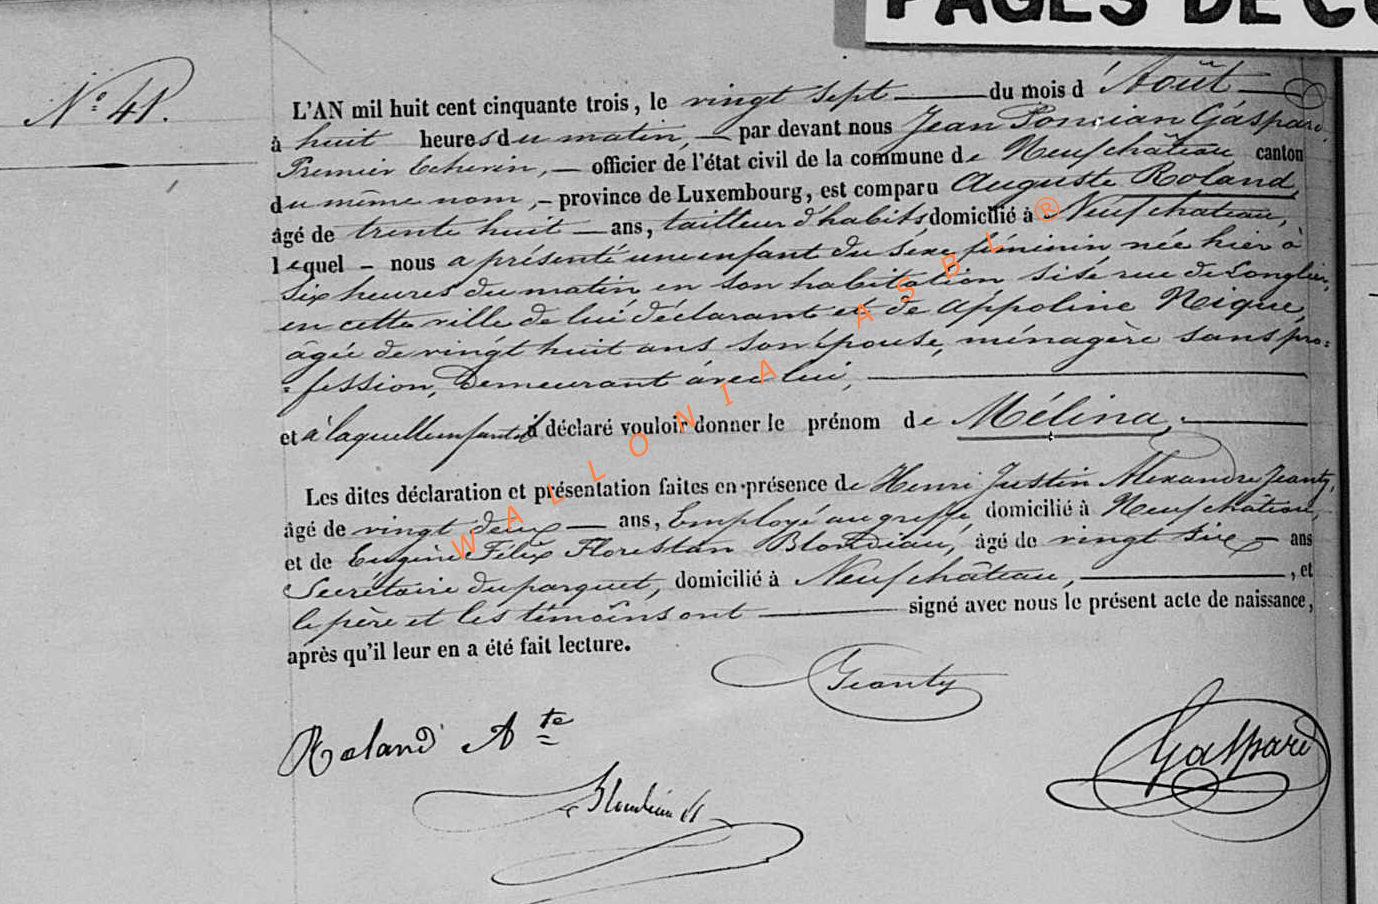 PAGES DE CO
N° 41.
L'AN mil huit cent cinquante trois, le vingt sept du mois d'Août
à huit heures du matin, par devant nous Jean Poncian Gaspard,
Premier Echevin, officier de l'état civil de la commune de Neufchâteau canton
du même nom, province de Luxembourg, est comparu Auguste Roland,
âgé de trente huit ans, tailleur d'habits domicilié à Neufchateau,
lequel nous a présenté une enfant du séxe féminin née hier à
six heures du matin en son habitation sise rue de Longlier,
en cette ville de lui déclarant et de Appoline Nique,
âgée de vingt huit ans son épouse, ménagère sans pro=
=fession, Demeurant avec lui,
et à laquelle enfant il a déclaré vouloir donner le prénom de Mélina,
Les dites déclaration et présentation faites en présence de Henri Justin Alexandre Jeanty,
âgé de vingt deux ans, Employé au greffe, domicilié à Neufchâteau,
et de Eugène Félix Florestan Blondiau, âgé de vingt six ans
Secrétaire du parquet, domicilié à Neufchâteau, , et
le père et les témoins ont signé avec nous le présent acte de naissance,
après qu'il leur en a été fait lecture.
Jeanty
Roland Ate
Gaspard
WALLONIA ASBL ®